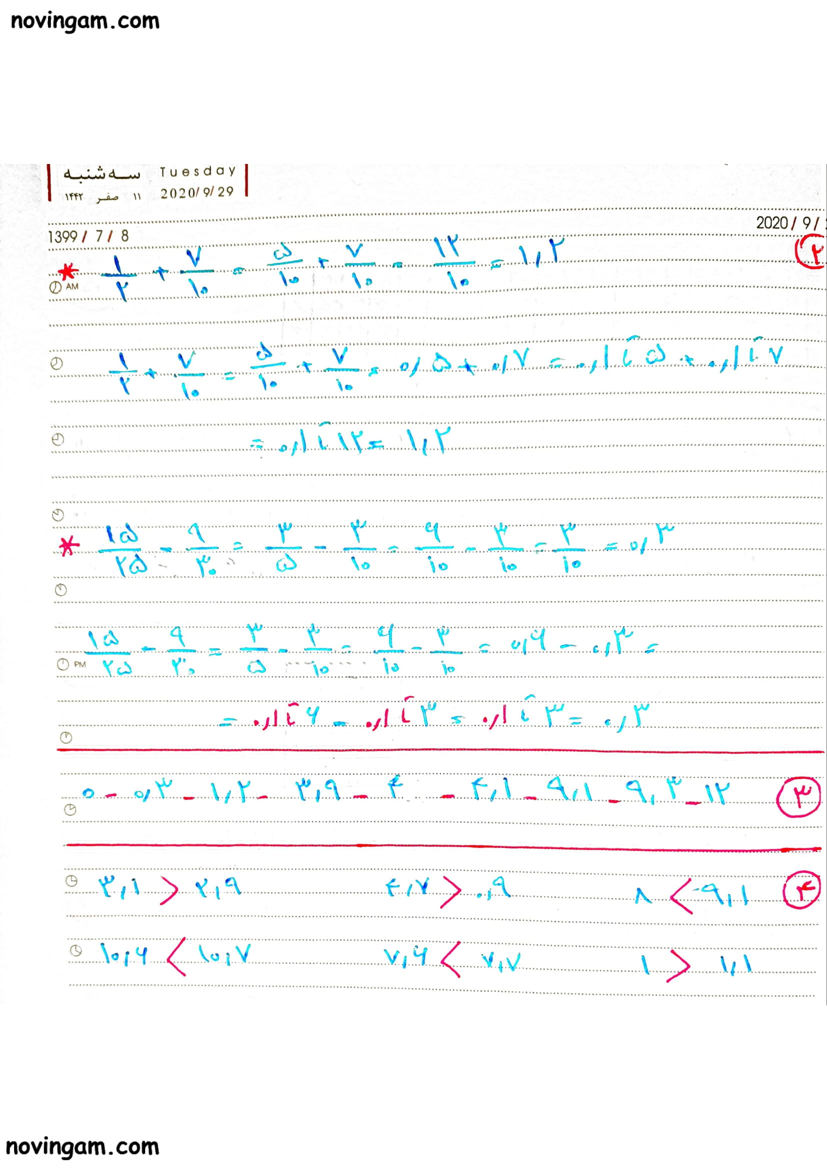 novingam.com
سه‌شنبه Tuesday
۱۱ صفر ۱۴۴۲ 2020/9/29
1399 / 7 / 8 2020 / 9 /
۲
* ۱/۲ + ۷/۱۰ = ۵/۱۰ + ۷/۱۰ = ۱۲/۱۰ = ۱٫۲
AM
۱/۲ + ۷/۱۰ = ۵/۱۰ + ۷/۱۰ = ۰٫۵ + ۰٫۷ = ۰٫۱ تا ۵ + ۰٫۱ تا ۷
= ۰٫۱ تا ۱۲ = ۱٫۲
* ۱۵/۲۵ - ۹/۳۰ = ۳/۵ - ۳/۱۰ = ۶/۱۰ - ۳/۱۰ = ۳/۱۰ = ۰٫۳
۱۵/۲۵ - ۹/۳۰ = ۳/۵ - ۳/۱۰ = ۶/۱۰ - ۳/۱۰ = ۰٫۶ - ۰٫۳ =
PM
= ۰٫۱ تا ۶ - ۰٫۱ تا ۳ = ۰٫۱ تا ۳ = ۰٫۳
۰ - ۰٫۳ - ۱٫۲ - ۳٫۹ - ۴ - ۴٫۱ - ۹٫۱ - ۹٫۳ - ۱۲ ۳
۳٫۱ > ۲٫۹ ۴٫۷ > ۰٫۹ ۸ < ۹٫۱ ۴
۱۰٫۶ < ۱۰٫۷ ۷٫۶ < ۷٫۷ ۱ > ۱٫۱
novingam.com